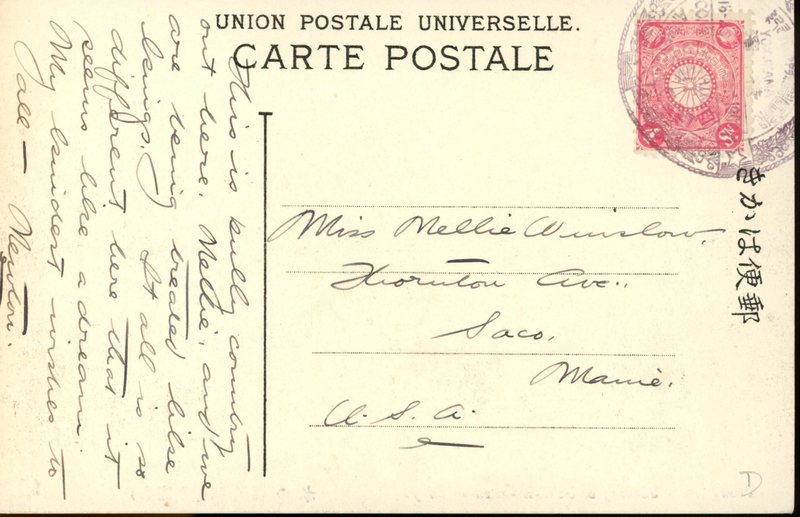 UNION POSTALE UNIVERSELLE.
CARTE POSTALE
This is bully country
out here, Mellie, and we
are being treated like
kings. It all is so
different here that it
seems like a dream.
My kindest wishes to
all — Newton.
Miss Mellie Winslow,
Thornton Ave.,
Saco,
Maine.
U. S. A.
きかは便郵
D